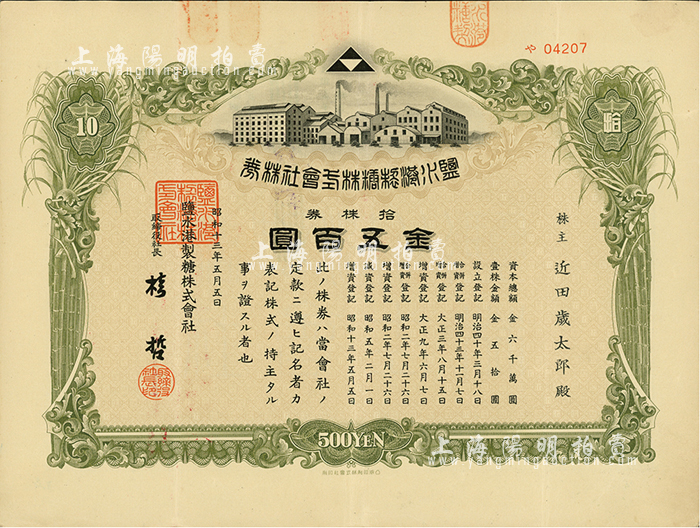 や 04207
10
拾
鹽水港製糖株式會社株券
拾株券
金五百圓
株主 近田歳太郎殿
資本總額 金六千萬圓
壹株金額 金五拾圓
設立登記 明治四十年三月十八日
明治四十三年十一月七日
大正三年八月十五日
增資登記 大正九年六月七日
昭和二年七月二十六日
增資登記 昭和二年七月二十六日
減資登記 昭和五年二月一日
增資登記 昭和十三年五月五日
此ノ株券ハ當會社ノ
定款ニ遵ヒ記名者カ
表記株式ノ持主タル
事ヲ證スル者也
昭和十三年五月五日
鹽水港製糖株式會社
取締役社長
哲
鹽水港製糖株式會社
500YEN
上海陽明拍賣
www.yangmingauction.com
上海陽明拍賣
www.yangmingauction.com
上海陽明拍賣
www.yangmingauction.com